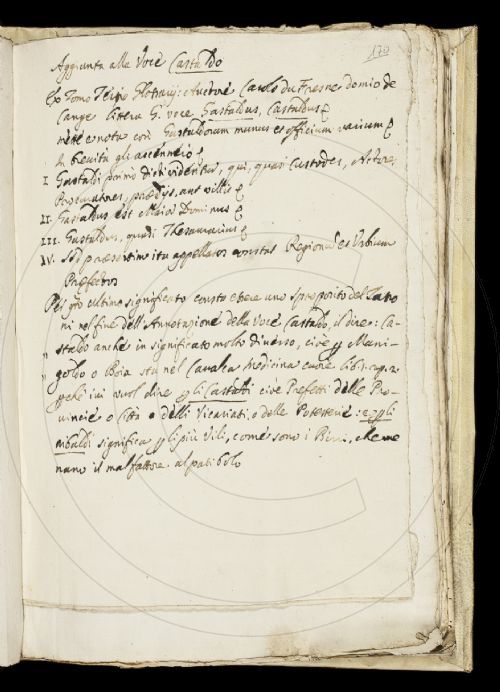 170
Aggiunta alla Voce Castaldo
Ex Tomo Glossarij: Auctore Carolo du Fresne domino de
Cange littera G. voce Gastaldus, Castaldus
e nota così Gastaldorum munus et officium varium
In brevità gli accennerò
I Gastaldi primo dicti videntur, qui, quasi Custodes, Actores,
Procuratores, praedijs, aut villis
II. Gastaldus est Maior Dominus
III. Gastaldus, quasi Thesaurarius
IV. Sed praesertim ita appellatos constat Regionum et Urbium
Praefectos
Per qto ultimo significato consta essere uno sproposito del
ni nel fine dell'Annotazione della Voce Castaldo, il dire: Ca-
staldo anche in significato molto diverso, cioè p Mani-
goldo o Boia sta nel Cavalca Medicina cuore lib. 1. cap. 2.
perchè ivi vuol dire p li Castaldi cioè Prefetti delle Pro-
vincie o Città o delli Vicariati, o delle Potesterie: e p li
ribaldi significa p li più Vili, come sono i Birri, che me
nano il malfattore al patibolo